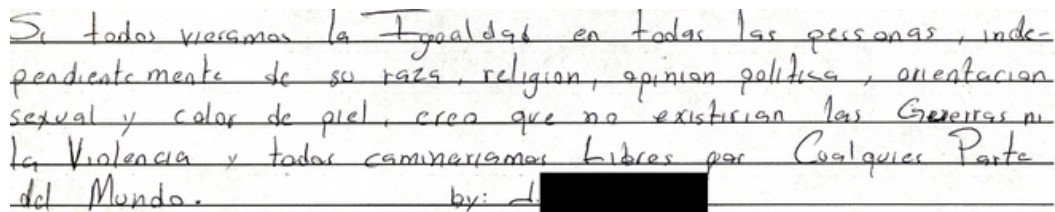 Si todos vieramos la Igualdad en todas las personas, inde-
pendientemente de su raza, religion, opinion politica, orientacion
sexual y color de piel, creo que no existirian las Guerras ni
la Violencia y todos caminariamos Libres por Cualquier Parte
del Mundo. by: J.